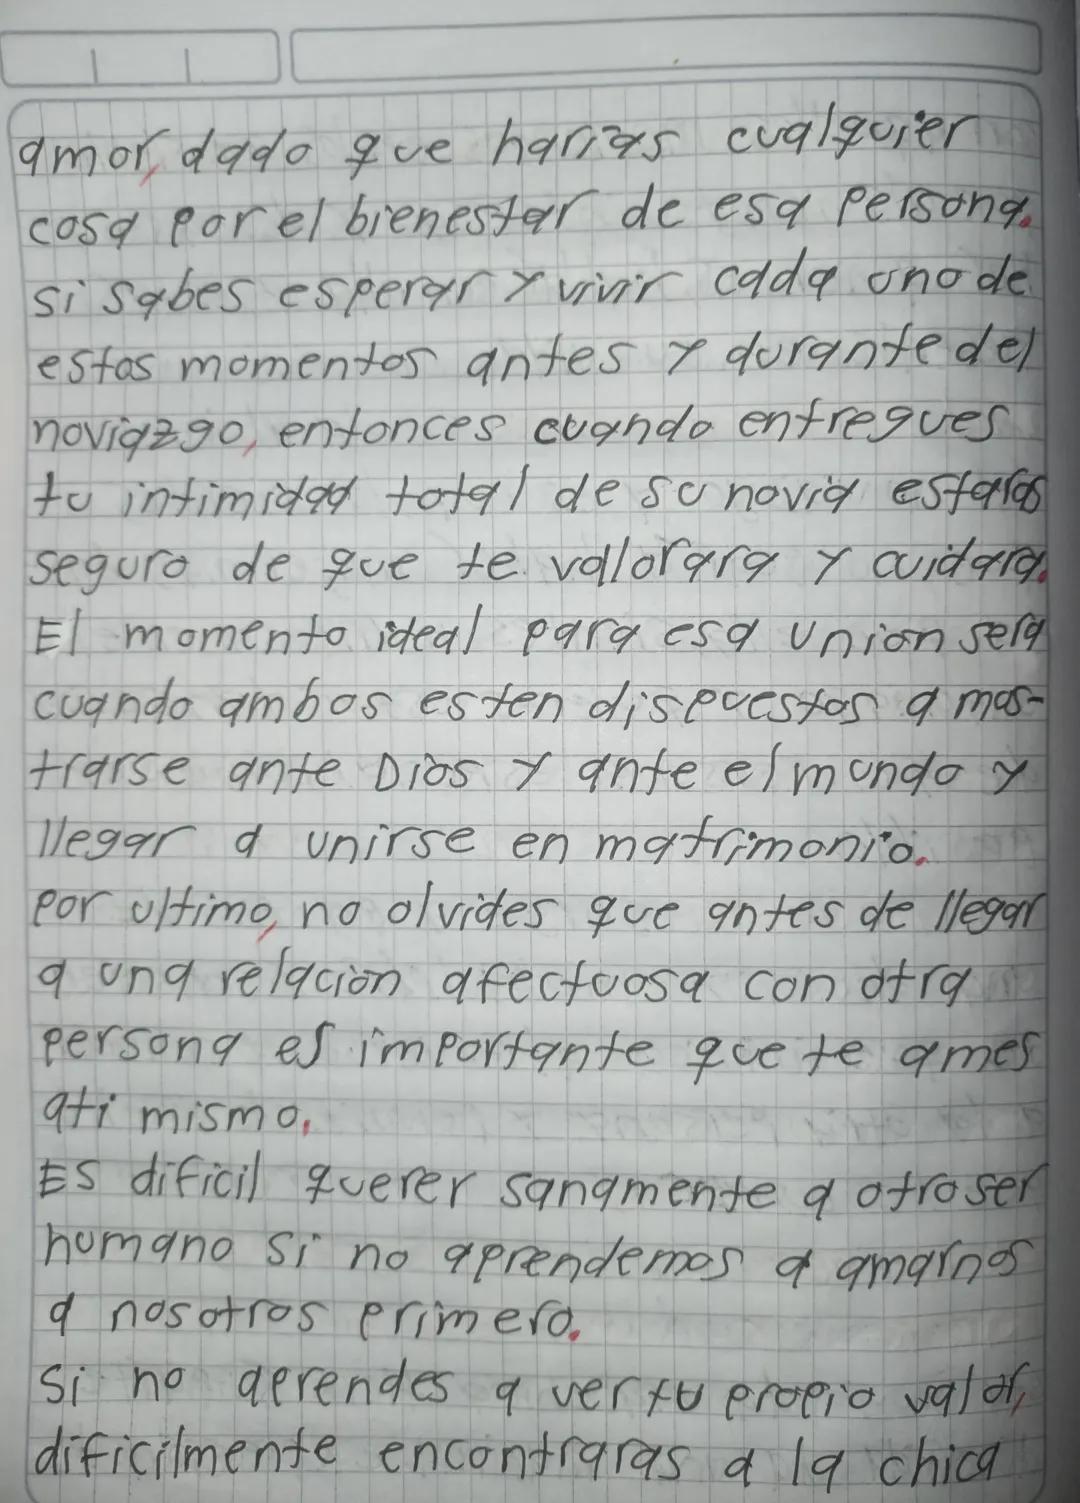 amor, dado que harias cualquier
cosa por el bienestar de esa persona.
si sabes esperar y vivir cada uno de
estos momentos antes y durante del
noviazgo, entonces cuando entregues
tu intimidad total de su novia estaras
seguro de que te valorara y cuidara.
El momento ideal para esa union sera
cuando ambos esten dispuestos a mos-
trarse ante Dios y ante el mundo y
llegar a unirse en matrimonio.
por ultimo, no olvides que antes de llegar
a una relacion afectuosa con otra
persona es importante que te ames
ati mismo.
Es dificil querer sanamente a otro ser
humano si no aprendemos a amarnos
a nosotros primero.
si no aprendes a ver tu propio valor,
dificilmente encontraras a la chica